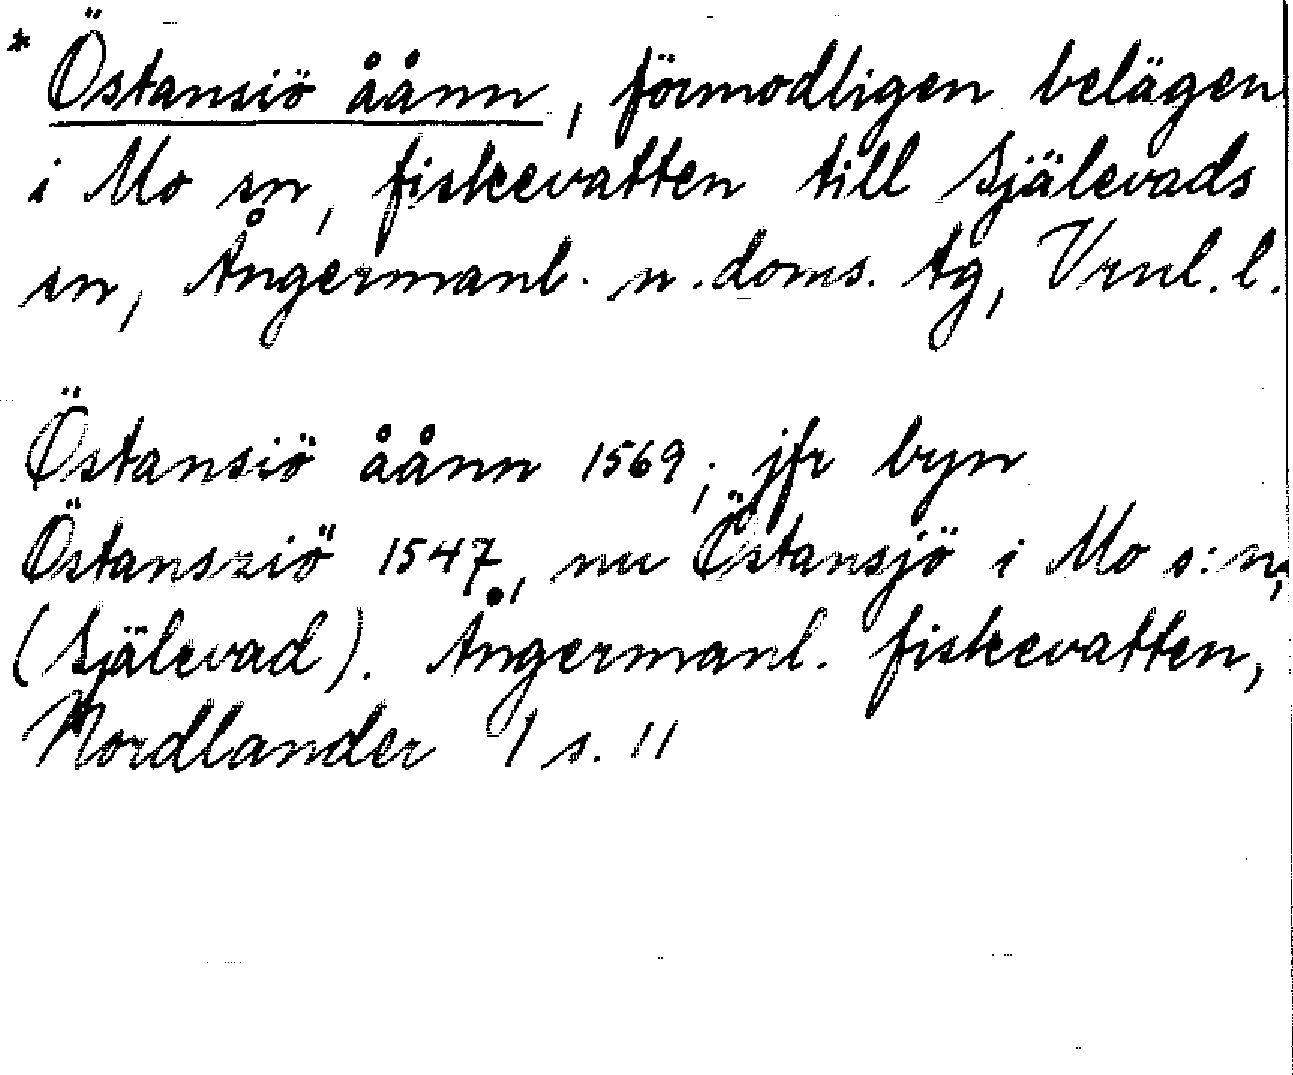 * Östansiö åånn, förmodligen belägen
i Mo sn, fiskevatten till Själevads
sn, Ångermanl. n. doms. tg, Vrnl. l.
Östansiö åånn 1569; jfr byn
Östansziö 1547, nu Östansjö i Mo s:n,
(Själevad). Ångermanl. fiskevatten,
Nordlander I s. 11